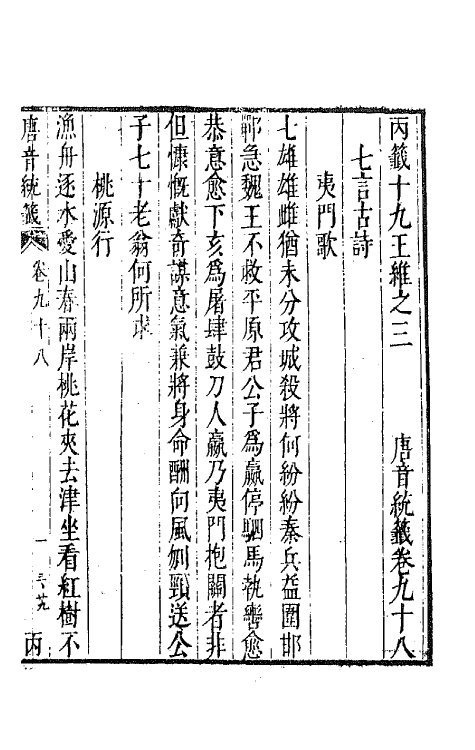 丙籤十九王維之三　唐音統籤卷九十八
七言古詩
夷門歌
七雄雄雌猶未分攻城殺將何紛紛秦兵益圍邯
鄲急魏王不救平原君公子爲嬴停駟馬執轡愈
恭意愈下亥爲屠肆鼓刀人嬴乃夷門抱關者非
但慷慨獻奇謀意氣兼將身命酬向風刎頸送公
子七十老翁何所求
桃源行
漁舟逐水愛山春兩岸桃花夾去津坐看紅樹不
唐音統籤 卷九十八 一 丙